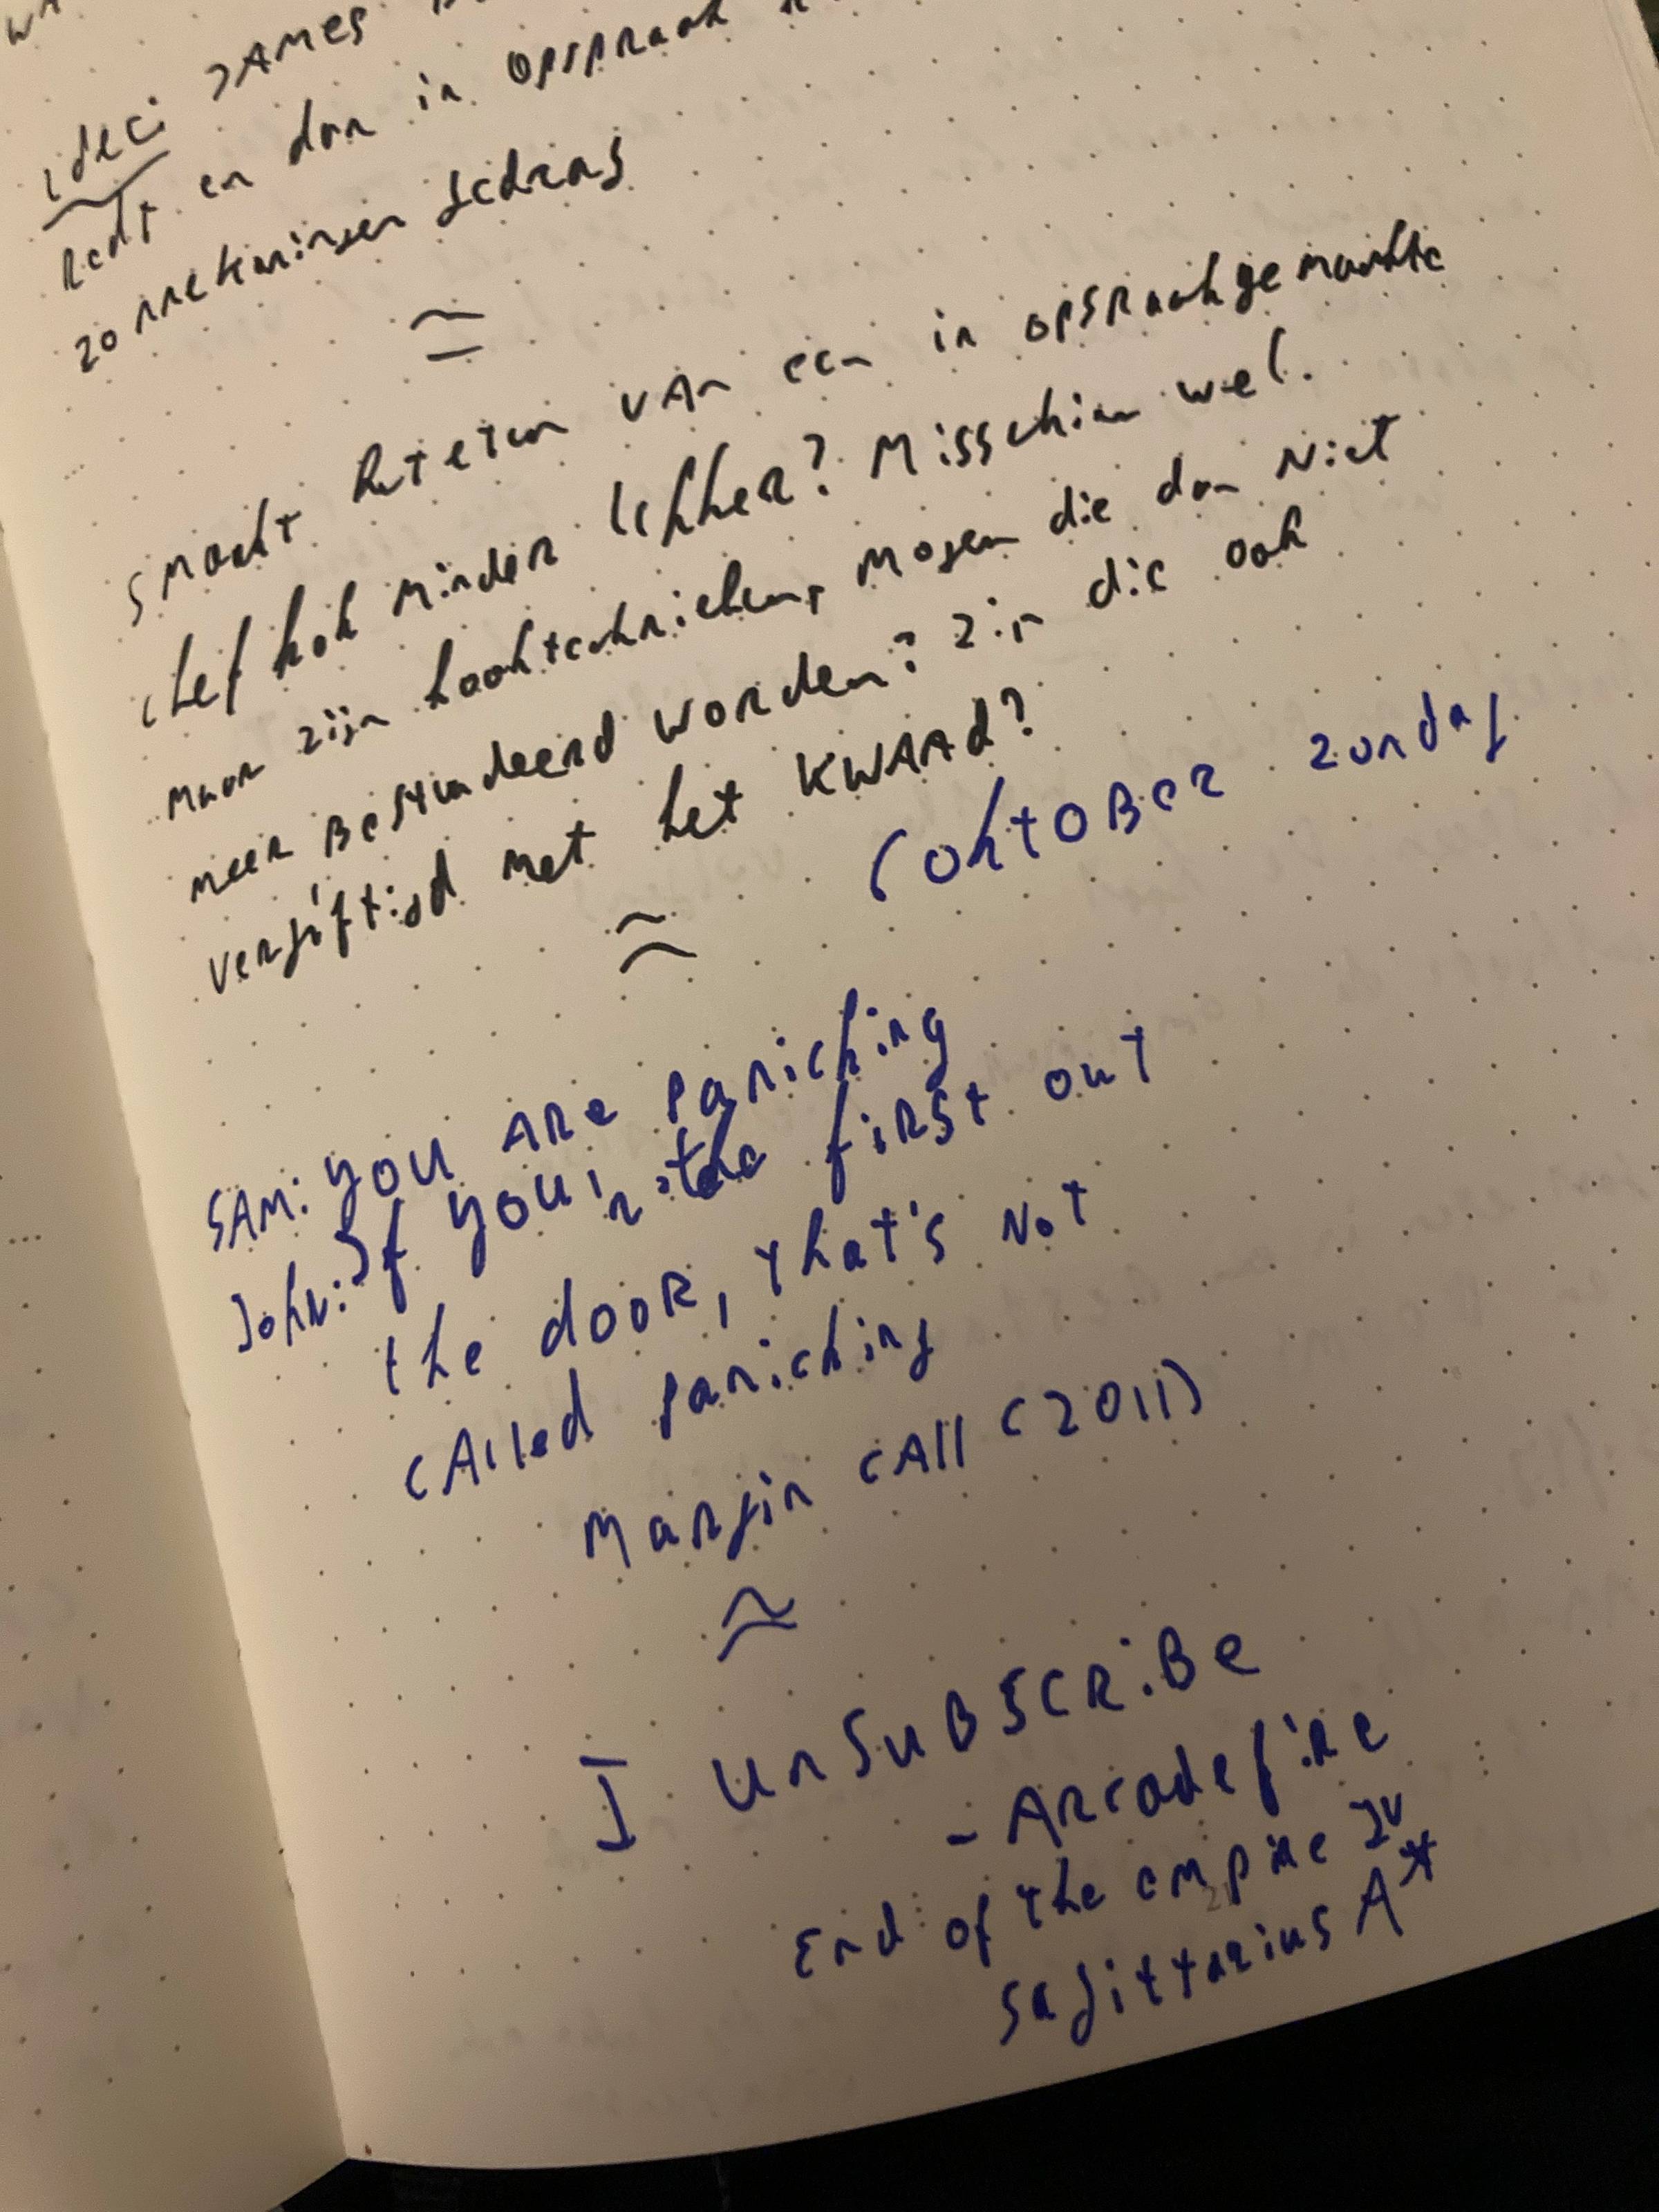 idee: James
Recht en dan in opspraak
zo rrekeningen gedrag
≈
smaakt het eten van een in opspraakgemaakte
chef kok minder lekker? Misschien wel.
maar zijn kooktechnieken, mogen die dan Niet
meer Bestudeerd worden? zijn die ook
vergiftigd met het KWAAd?
≈ (oktober zondag
SAM: you are panicking
John: If you're the first out
the door, that's not
called panicking
Margin call (2011)
≈
I unsubscribe
- Arcade fire
End of the empire IV
Sagittarius A*